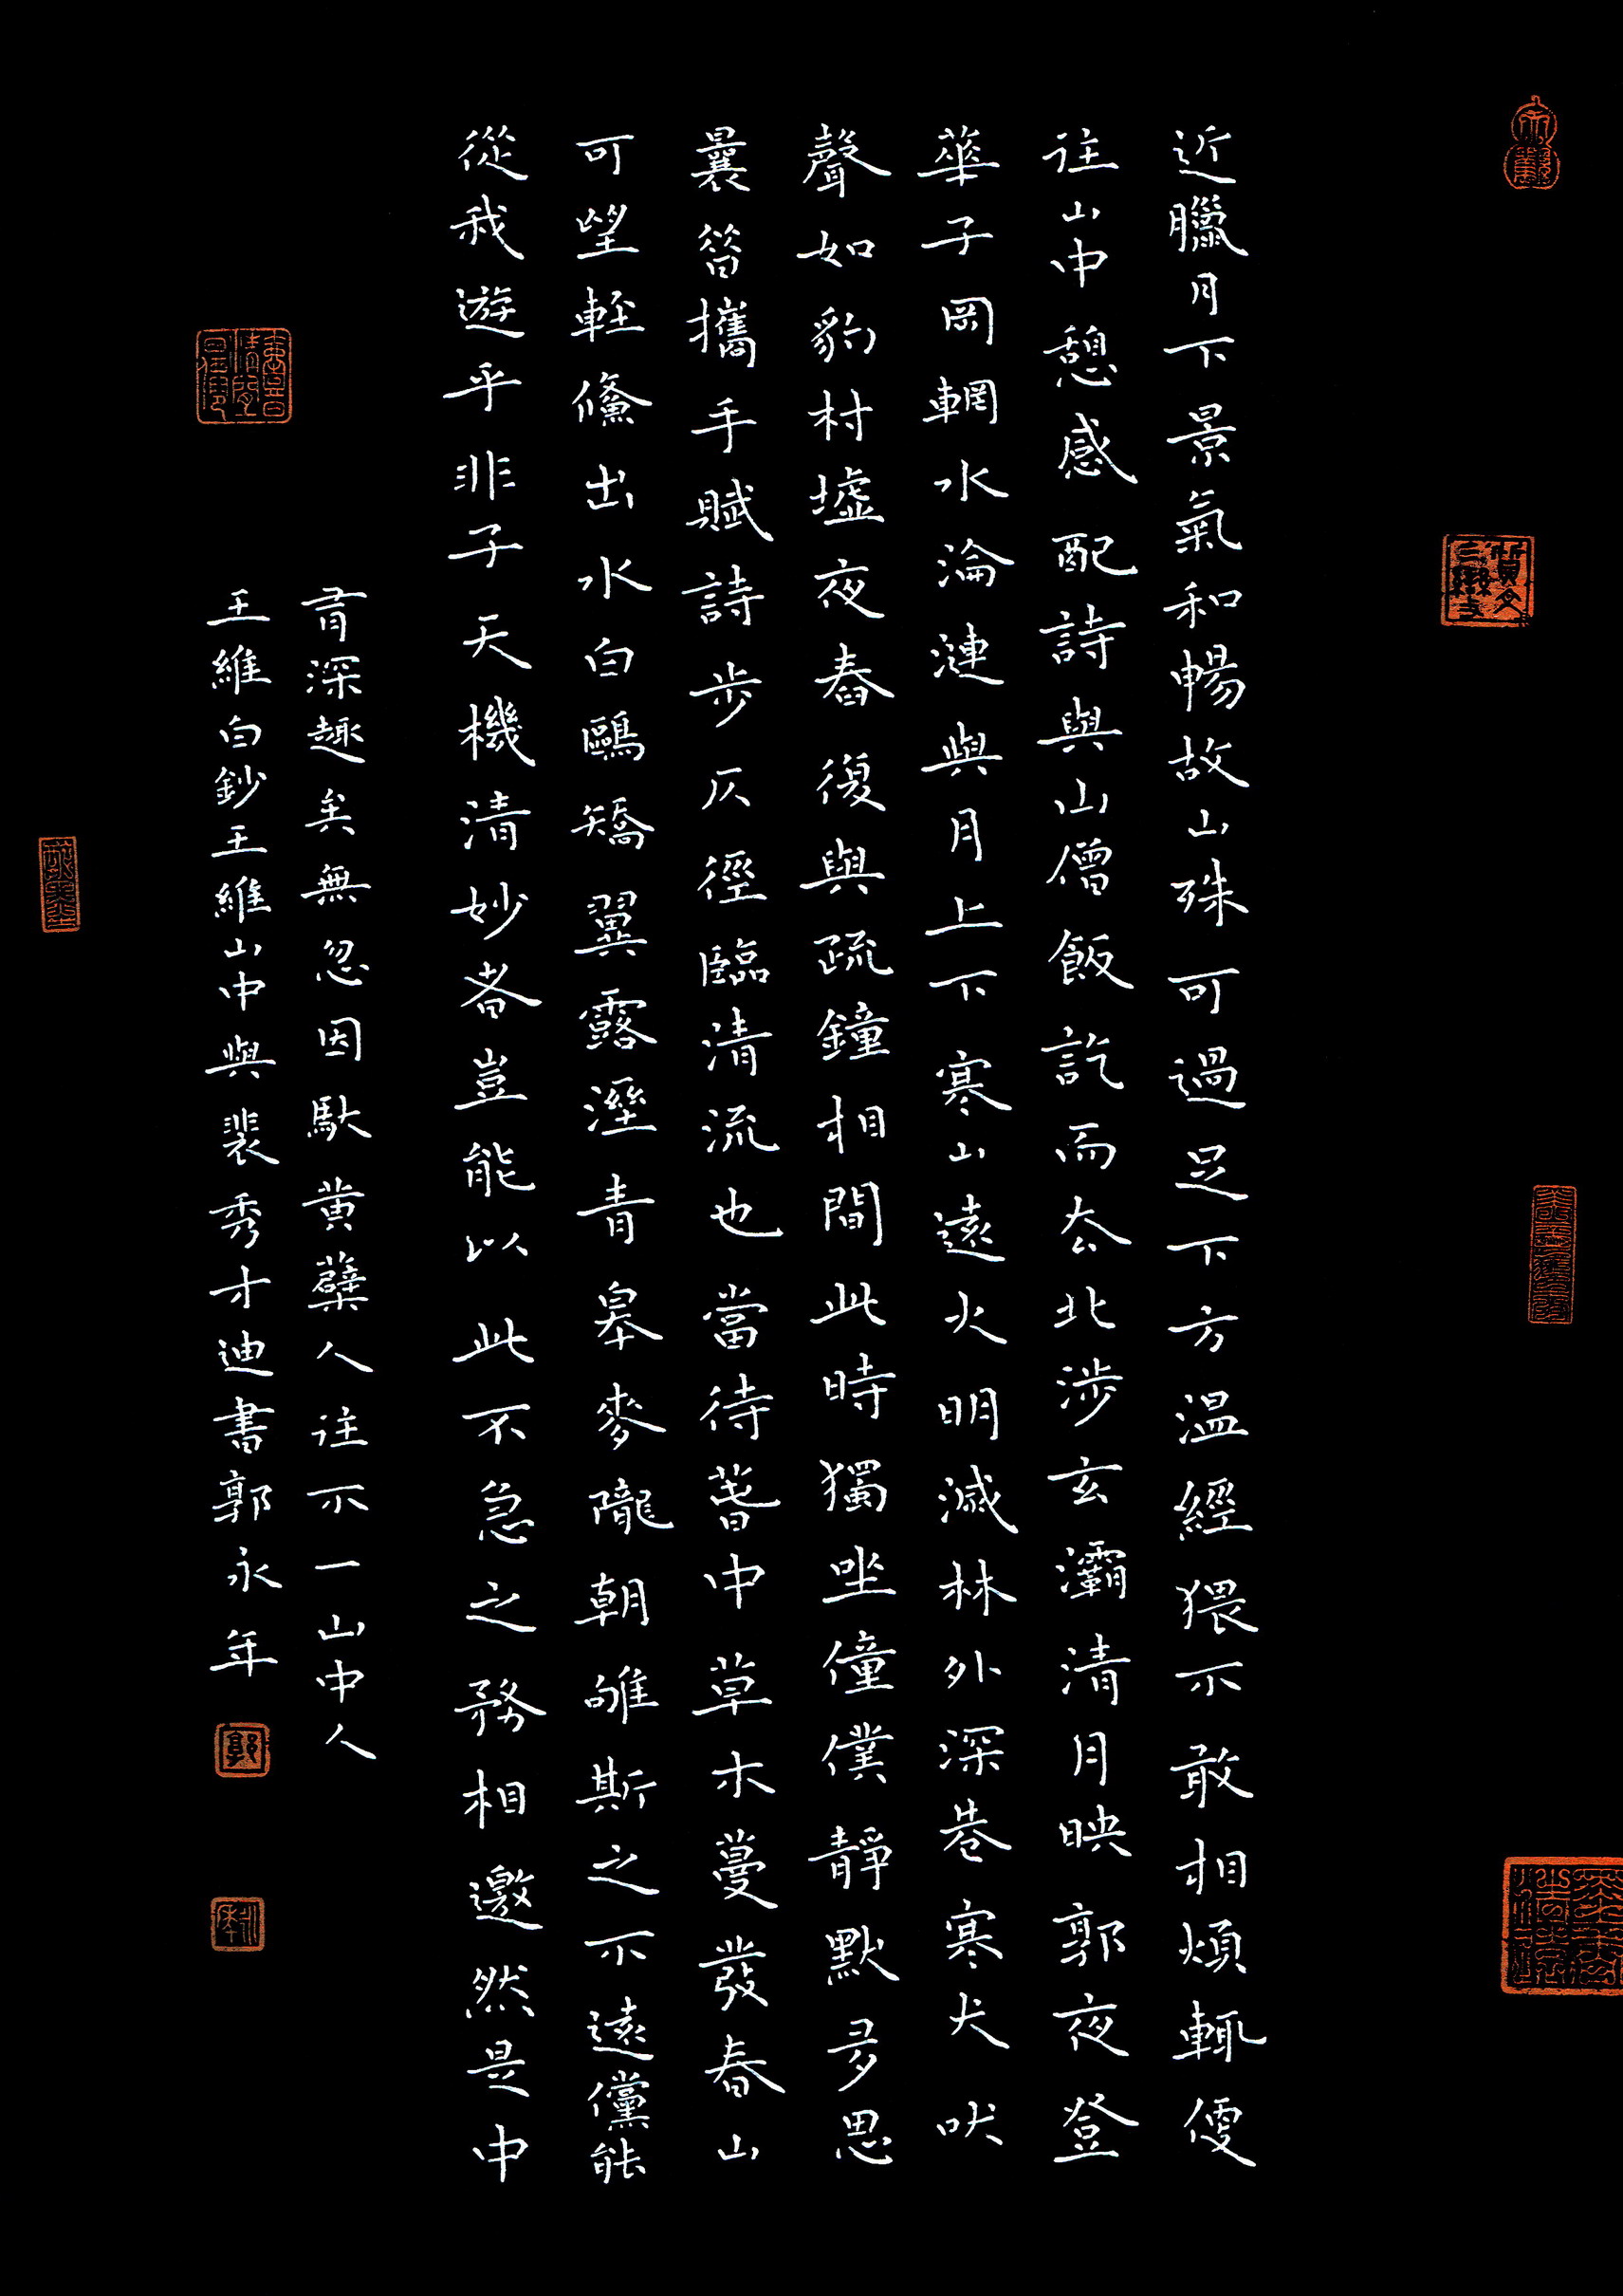 近臘月下景氣和暢故山殊可過足下方温經猥不敢相煩輒便
往山中憩感配詩與山僧飯訖而去北涉玄灞清月映郭夜登
華子岡輞水淪漣與月上下寒山遠火明滅林外深巷寒犬吠
聲如豹村墟夜舂復與疏鐘相間此時獨坐僮僕靜默多思
曩昔攜手賦詩步仄徑臨清流也當待春中草木蔓發春山
可望輕鯈出水白鷗矯翼露溼青皋麥隴朝雊斯之不遠儻能
從我遊乎非子天機清妙者豈能以此不急之務相邀然是中
有深趣矣無忽因馱黃蘗人往不一山中人
王維白鈔王維山中與裴秀才迪書郭永年
郭